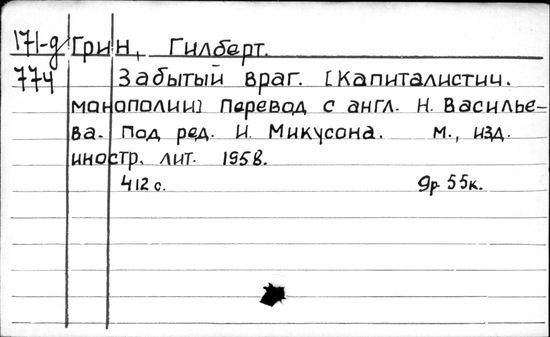 171-д Грин, Гилберт.
774 Забытый враг. [Капиталистич.
монополии] Перевод с англ. Н. Василье-
ва. Под ред. И. Микусона. М., изд.
иностр. лит. 1958.
412 с. 9р. 55к.